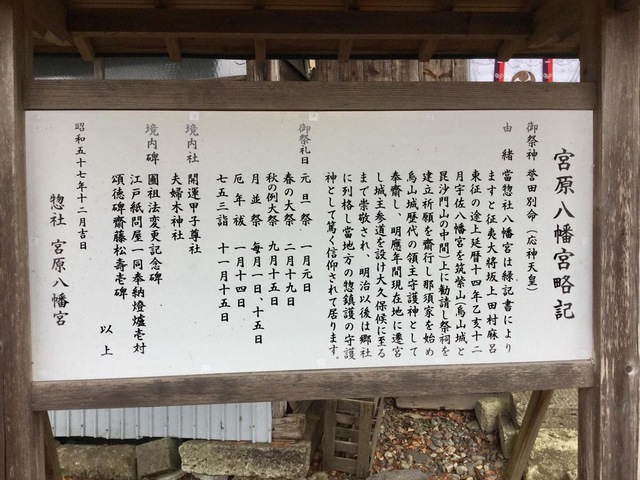 宮原八幡宮略記
御祭神 誉田別命（応神天皇）
由緒 當惣社八幡宮は縁記書により
ますと征夷大将坂上田村麻呂
東征の途上延暦十四年乙亥十二
月宇佐八幡宮を筑紫山（烏山城と
毘沙門山の中間）上に勧請し祭祠を
建立祈願を齋行し那須家を始め
烏山城歴代の領主守護神として
奉齋し、明應年間現在地に遷宮
し城主参道を設け大久保候に至る
まで崇敬され、明治以後は郷社
に列格し當地方の惣鎮護の守護
神として篤く信仰されて居ります。
御祭礼日 元旦祭 一月元日
春の大祭 二月十九日
秋の例大祭 九月十五日
月並祭 毎月一日、十五日
厄年祓 一月十四日
七五三詣 十一月十五日
境内社 開運甲子尊社
夫婦木神社
境内碑 圃祖法変更記念碑
江戸紙問屋一同奉納燈爐壱対
頌徳碑齋藤松壽壱碑
以上
昭和五十七年十二月吉日
惣社 宮原八幡宮